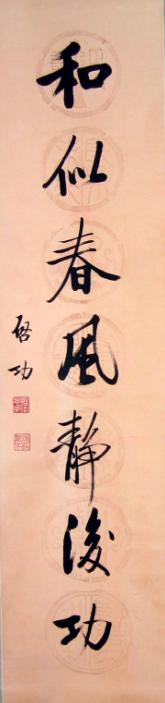 和似春風靜後功
啓功